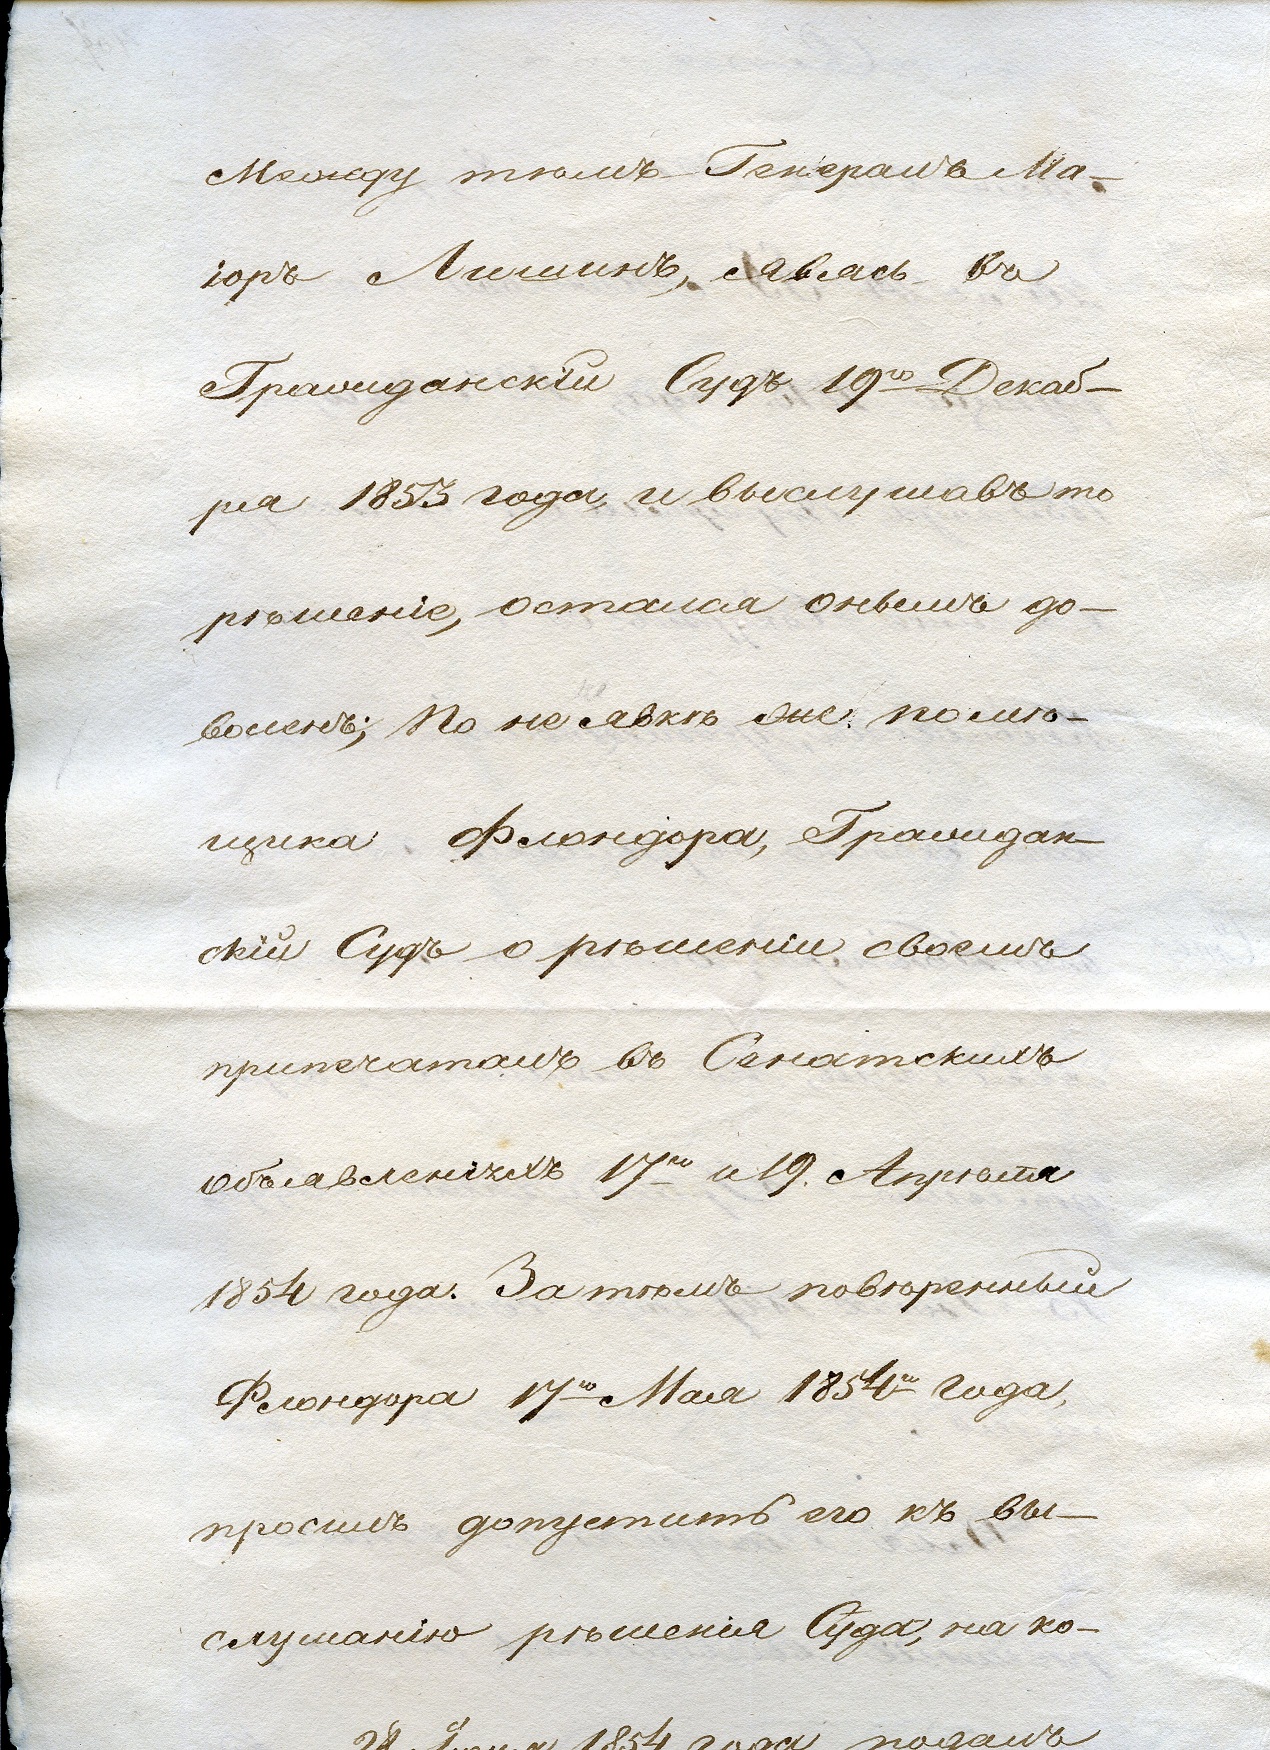 Между тѣмъ Генералъ Ма-
іоръ Лишинъ, явясь въ
Гражданскій Судъ 19го Декаб-
ря 1853 года, и выслушавъ то
рѣшеніе, остался онымъ до-
воленъ; По не явкѣ же помѣ-
щика Флондора, Граждан-
скій Судъ о рѣшеніи своемъ
припечаталъ въ Сенатскихъ
объявленіяхъ 17го и 19. Апрѣля
1854 года. За тѣмъ повѣренный
Флондора 17го Мая 1854го года,
просилъ допустить его къ вы-
слушанію рѣшенія Суда, на ко-
1854 года подалъ